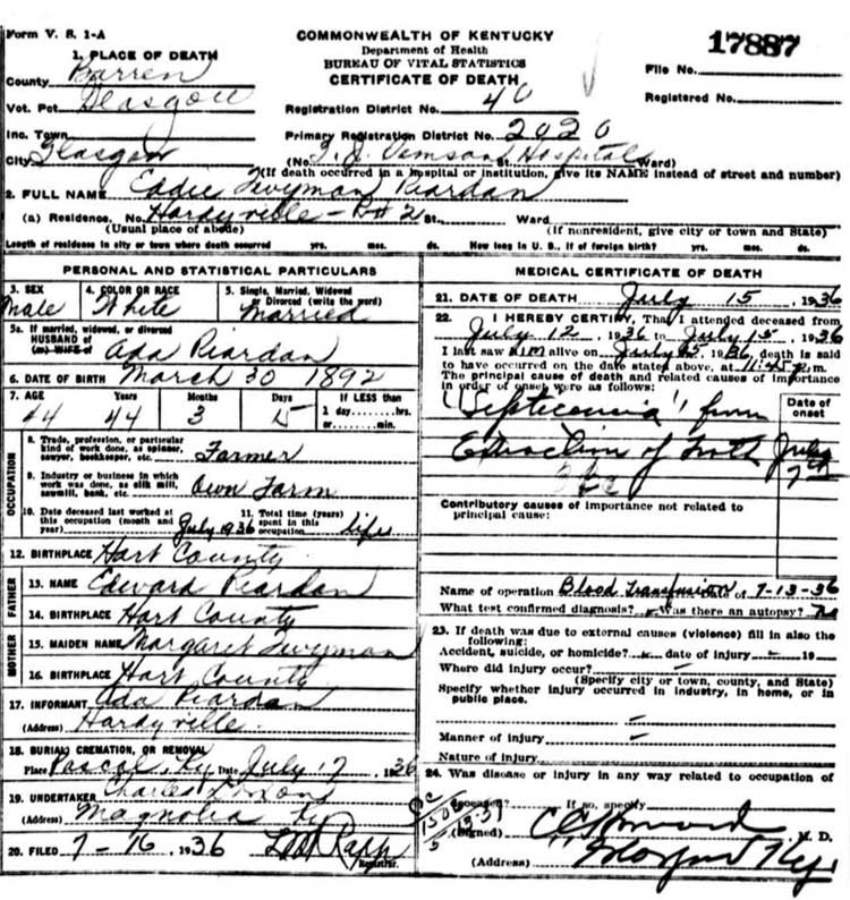 Form V. S. 1-A
COMMONWEALTH OF KENTUCKY
Department of Health
BUREAU OF VITAL STATISTICS
CERTIFICATE OF DEATH
17887
File No.
Registered No.
1. PLACE OF DEATH
County Barren
Vot. Pct. Glasgow
Inc. Town
City Glasgow
Registration District No. 40
Primary Registration District No. 2020
(No. T. J. Hospital Ward)
(If death occurred in a hospital or institution, give its NAME instead of street and number)
2. FULL NAME Eddie Twyman Riordan
(a) Residence. No. Hardyville - R# 2 St. Ward
(Usual place of abode) (If nonresident, give city or town and State)
Length of residence in city or town where death occurred yrs. mos. ds. How long in U. S., if of foreign birth? yrs. mos. ds.
PERSONAL AND STATISTICAL PARTICULARS
3. SEX Male
4. COLOR OR RACE White
5. Single, Married, Widowed or Divorced (write the word) Married
5a. If married, widowed, or divorced
HUSBAND of
(or) WIFE of Ada Riordan
6. DATE OF BIRTH March 30 1892
7. AGE Years Months Days If LESS than
44 44 3 15 1 day hrs.
or min.
OCCUPATION
8. Trade, profession, or particular kind of work done, as spinner, sawyer, bookkeeper, etc. Farmer
9. Industry or business in which work was done, as silk mill, sawmill, bank, etc. Own Farm
10. Date deceased last worked at this occupation (month and year) July 1936
11. Total time (years) spent in this occupation life
12. BIRTHPLACE Hart County
FATHER
13. NAME Edward Riordan
14. BIRTHPLACE Hart County
MOTHER
15. MAIDEN NAME Margaret Twyman
16. BIRTHPLACE Hart County
17. INFORMANT Ada Riordan
(Address) Hardyville
18. BURIAL, CREMATION, OR REMOVAL
Place Pascal, Ky Date July 17, 1936
19. UNDERTAKER Charles
(Address) Magnolia Ky
20. FILED 7-16, 1936
Registrar.
MEDICAL CERTIFICATE OF DEATH
21. DATE OF DEATH July 15, 1936
22. I HEREBY CERTIFY, That I attended deceased from
July 12, 1936 to July 15, 1936
I last saw him alive on July 15, 1936, death is said
to have occurred on the date stated above, at 11:45 p.m.
The principal cause of death and related causes of importance
in order of onset were as follows:
Date of onset
"Septicemia" from
Extraction of tooth July
7
Contributory causes of importance not related to
principal cause:
Name of operation Blood Transfusion Date of 7-13-36
What test confirmed diagnosis? Was there an autopsy? No
23. If death was due to external causes (violence) fill in also the
following:
Accident, suicide, or homicide? date of injury 19
Where did injury occur?
(Specify city or town, county, and State)
Specify whether injury occurred in industry, in home, or in
public place.
Manner of injury
Nature of injury
24. Was disease or injury in any way related to occupation of
deceased? If so, specify
(Signed) M. D.
(Address) Glasgow Ky.